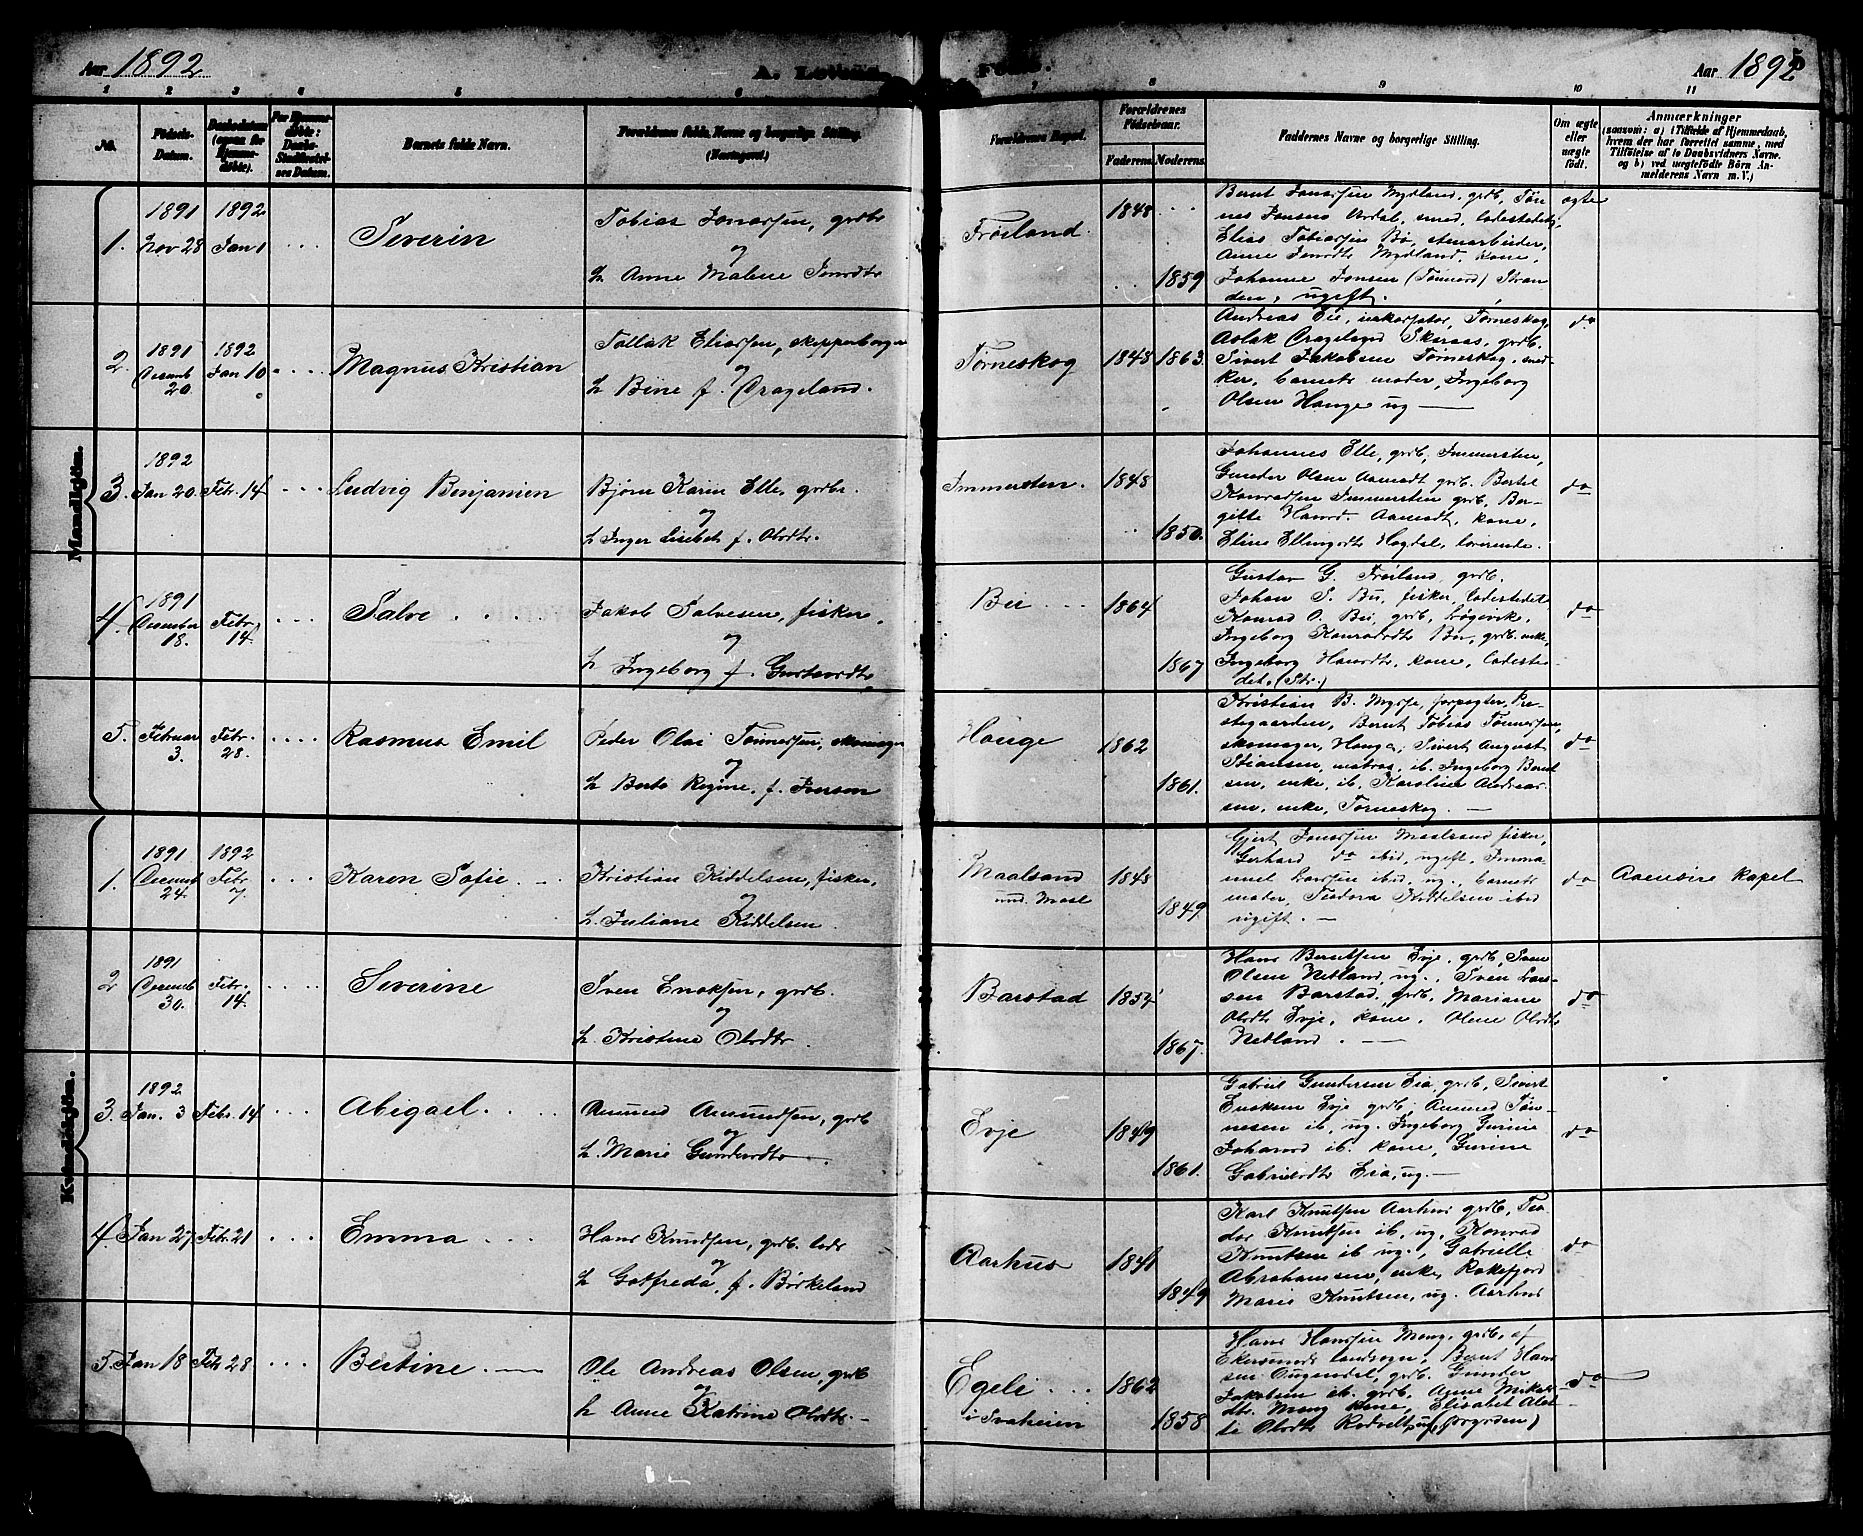 Aar 1892
A. Levende
Fødte.
Aar 1892
5
1 2 3 4 5 6 7 8 9 10 11
No.
Fødsels-Datum.
Daabsdatum (ogsaa for Hjemmedøbte).
For Hjemmedøbte: Daabs-Stadfæstelses Datum.
Barnets fulde Navn.
Forældrenes fulde Navne og borgerlige Stilling.
(Næringsvei.)
Forældrenes Bopæl.
Forældrenes Fødselsaar.
Faderens. Moderens.
Faddernes Navne og borgerlige Stilling.
Om ægte eller uægte født.
Anmærkninger
(saasom: a) i Tilfælde af Hjemmedaab,
hvem der har forrettet samme, med
Tilføielse af to Daabsvidners Navne.
og b) ved uægtefødte Børn An-
melderens Navn m. V.)
Mandkjøn.
1. 1891 Nov 28 1892 Jan 1 Severin
Tobias Jonassen, grdbr
og
h. Anne Malene Jonsdtr
Frøiland. 1848 1859
Bernt Jonassen Mydland, grdb, Tøn-
nes Jonsens Urdal, smed, ladestedet,
Elias Tobiassen Bø, stenarbeider,
Anne Jonsdtr Mydland, kone,
Johanne Jonsen (Tønnesd) Stran-
den, ugift.
ægte
2. 1891 Decemb 20. 1892 Jan 10 Magnus Kristian
Tollak Eliassen, skipperborger
og
h. Bine f. Drageland.
Tørneskog 1848 1863.
Andreas Eie, Tørneskog,
Aslak Drageland Skaraas, grdb.
Sivert Jakobsen Tørneskog, sned-
ker, barnets moder, Ingeborg
Olsen Hauge ug
do
3. 1892 Jan 20. Febr. 14 Ludvig Benjamin
Bjørn Karin Elle, grdbr.
og
h. Inger Lisebet f. Olsdtr.
Immersten. 1848 1850.
Johannes Elle, grdb, Immersten,
Gunder Olsen Aamodt grdb. Bertel
Konradsen Immersten grdb, Ber-
gitte Hansd. Aamodt, kone,
Eline Ellingsdtr Hogdal,
do
4. 1891 December 18. Febr. 14. Salve
Jakob Salvesen, fisker,
og
h. Ingeborg f. Gustavsdtr
Bu 1864 1867
Gustav G. Frøiland, grdb.
Johan S. Bu, fisker, ladestedet
Konrad O. Bu, grdb, Løgevik,
Ingeborg Konradsdtr Bu, grdb. enke,
Ingeborg Hansdtr, kone, ladeste-
det. (Str.)
do
5. Februar 3. Febr. 28. Rasmus Emil
Peder Olai Tønnessen, skomager
og
h. Berta Regine, f. Jonson
Hauge 1862 1861.
Kristian B. Mysse, forpagter, Pre-
stegaarden, Bernt Tobias Tønnessen,
skomager, Hauge, Sivert August
Stiansen, matros, ib. Ingeborg Bernt-
sen, enke, ib. Karoline Andreas-
sen, enke, Tørneskog.
do
Kvindekjøn.
1. 1891 Decemb 24. 1892 Febr 7. Karen Sofie
Kristian Kiddelsen, fisker,
og
h. Juliane Kiddelsen.
Maalsund
und. Mosl
1848 1849
Gjert Jonassen Maalsund fisker,
Gerhard do ibid, ugift, Imma-
nuel Larssen ibid, ug., barnets
moder, Teodora Kittelsen ibid
ugift.
do
Aaensire kapel
2 1891 Decemb 30. Febr. 14. Severine
Sven Enoksen, grdb.
og
h. Kristine Olsdtr.
Barstad 1854 1867.
Hans Berntsen Evje, grdb, Sven
Olsen Netland, ug. Sven Lars-
sen Barstad, grdb, Mariane
Olsdtr Evje, kone, Olene Olsdtr
Netland.
do
3. 1892 Jan. 3 Febr. 14 Abigael.
Amund Amundsen, grdb
og
h. Marie Gundersdtr
Evje 1849 1861.
Gabriel Gundersen Eia, grdb, Sivert
Enoksen Evje grdb, Amund Tøn-
nesen ib, ug. Ingeborg Gurine
Johansd ib. kone, Gurine
Gabrielsdtr Eia, ug.
do
4. Jan 27 Febr. 21 Emma
Hans Knudsen, grdb.
og
h. Gotfreda, f. Birkeland
Aarhus 1841 1849
Karl Knutsen Aarhus grdb, Teo-
dor Knutsen ib, ug, Konrad
Knutsen ib ug., Gabrielle
Abrahamsen, enke, Rekefjord
Marie Knutsen, ug. Aarhus
do
5. Jan 18 Febr 28. Bertine.
Ole Andreas Olsen, grdb
og
h. Anne Katrine Olsdtr.
Egeli
i Svaheien
1862 1858.
Hans Hanssen Mong, grdb, af
Ekersunds landsogn, Bernt Han-
sen Ougendal, grdb. Gunder
Jakobsen ib. grdb, Anne Mikals-
dtr. Mong kone, Elisabet
Olsdtr Rodvelt, ug.
do